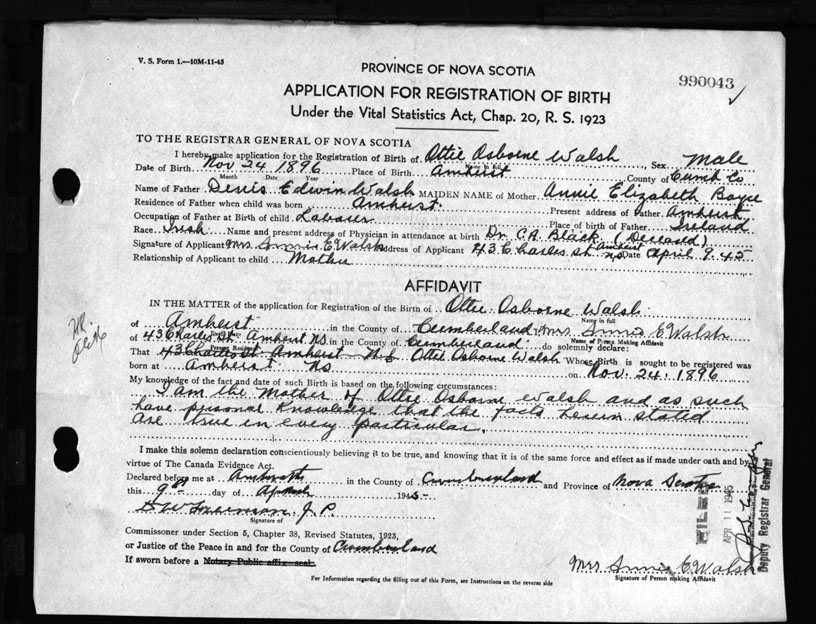 V. S. Form 1.—10M-11-43
PROVINCE OF NOVA SCOTIA
990043
APPLICATION FOR REGISTRATION OF BIRTH
Under the Vital Statistics Act, Chap. 20, R. S. 1923
TO THE REGISTRAR GENERAL OF NOVA SCOTIA
I hereby make application for the Registration of Birth of Ottie Osborne Walsh, Sex Male
Date of Birth Nov 24 1896 Place of Birth Amherst County of Cumb Co
Month Date Year
Name of Father Denis Edwin Walsh MAIDEN NAME of Mother Annie Elizabeth Boyce
Residence of Father when child was born Amherst Present address of Father Amherst
Occupation of Father at Birth of child Laborer Place of birth of Father Ireland
Race Irish Name and present address of Physician in attendance at birth Dr. C.A. Black (Deceased)
Signature of Applicant Mrs Annie E Walsh Address of Applicant 43 Charles St Amherst NS Date April 9-45
Relationship of Applicant to child Mother
AFFIDAVIT
IN THE MATTER of the application for Registration of the Birth of Ottie Osborne Walsh
Name in full
of Amherst in the County of Cumberland Mrs Annie E Walsh
Name of Person Making Affidavit
of 43 Charles St. Amherst NS. in the County of Cumberland do solemnly declare:
That 43 Charles St. Amherst Ottie Osborne Walsh Whose Birth is sought to be registered was
born at Amherst NS on Nov. 24. 1896
My knowledge of the fact and date of such Birth is based on the following circumstances:
I am the Mother of Ottie Osborne Walsh and as such
have personal knowledge that the facts herein stated
are true in every particular.
I make this solemn declaration conscientiously believing it to be true, and knowing that it is of the same force and effect as if made under oath and by
virtue of The Canada Evidence Act.
Declared before me at Amherst in the County of Cumberland and Province of Nova Scotia
this 9th day of April 1945
J. P.
Signature of
Commissoner under Section 5, Chapter 38, Revised Statutes, 1923,
or Justice of the Peace in and for the County of Cumberland
If sworn before a Notary Public affix seal.
Mrs Annie E Walsh
For Information regarding the filling out of this Form, see Instructions on the reverse side
Signature of Person making Affidavit
FILED
APR 11 1945
Deputy Registrar General